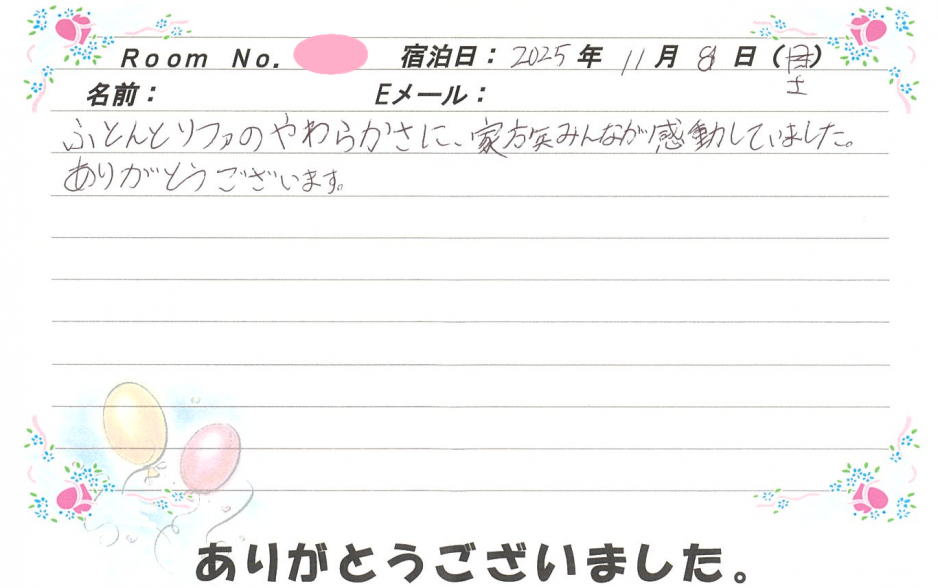 Room No. 宿泊日：2025年 11月 8日（土）
名前： Eメール：
ふとんとリファのやわらかさに、家方矢みんなが感動していました。
ありがとうございます。
ありがとうございました。